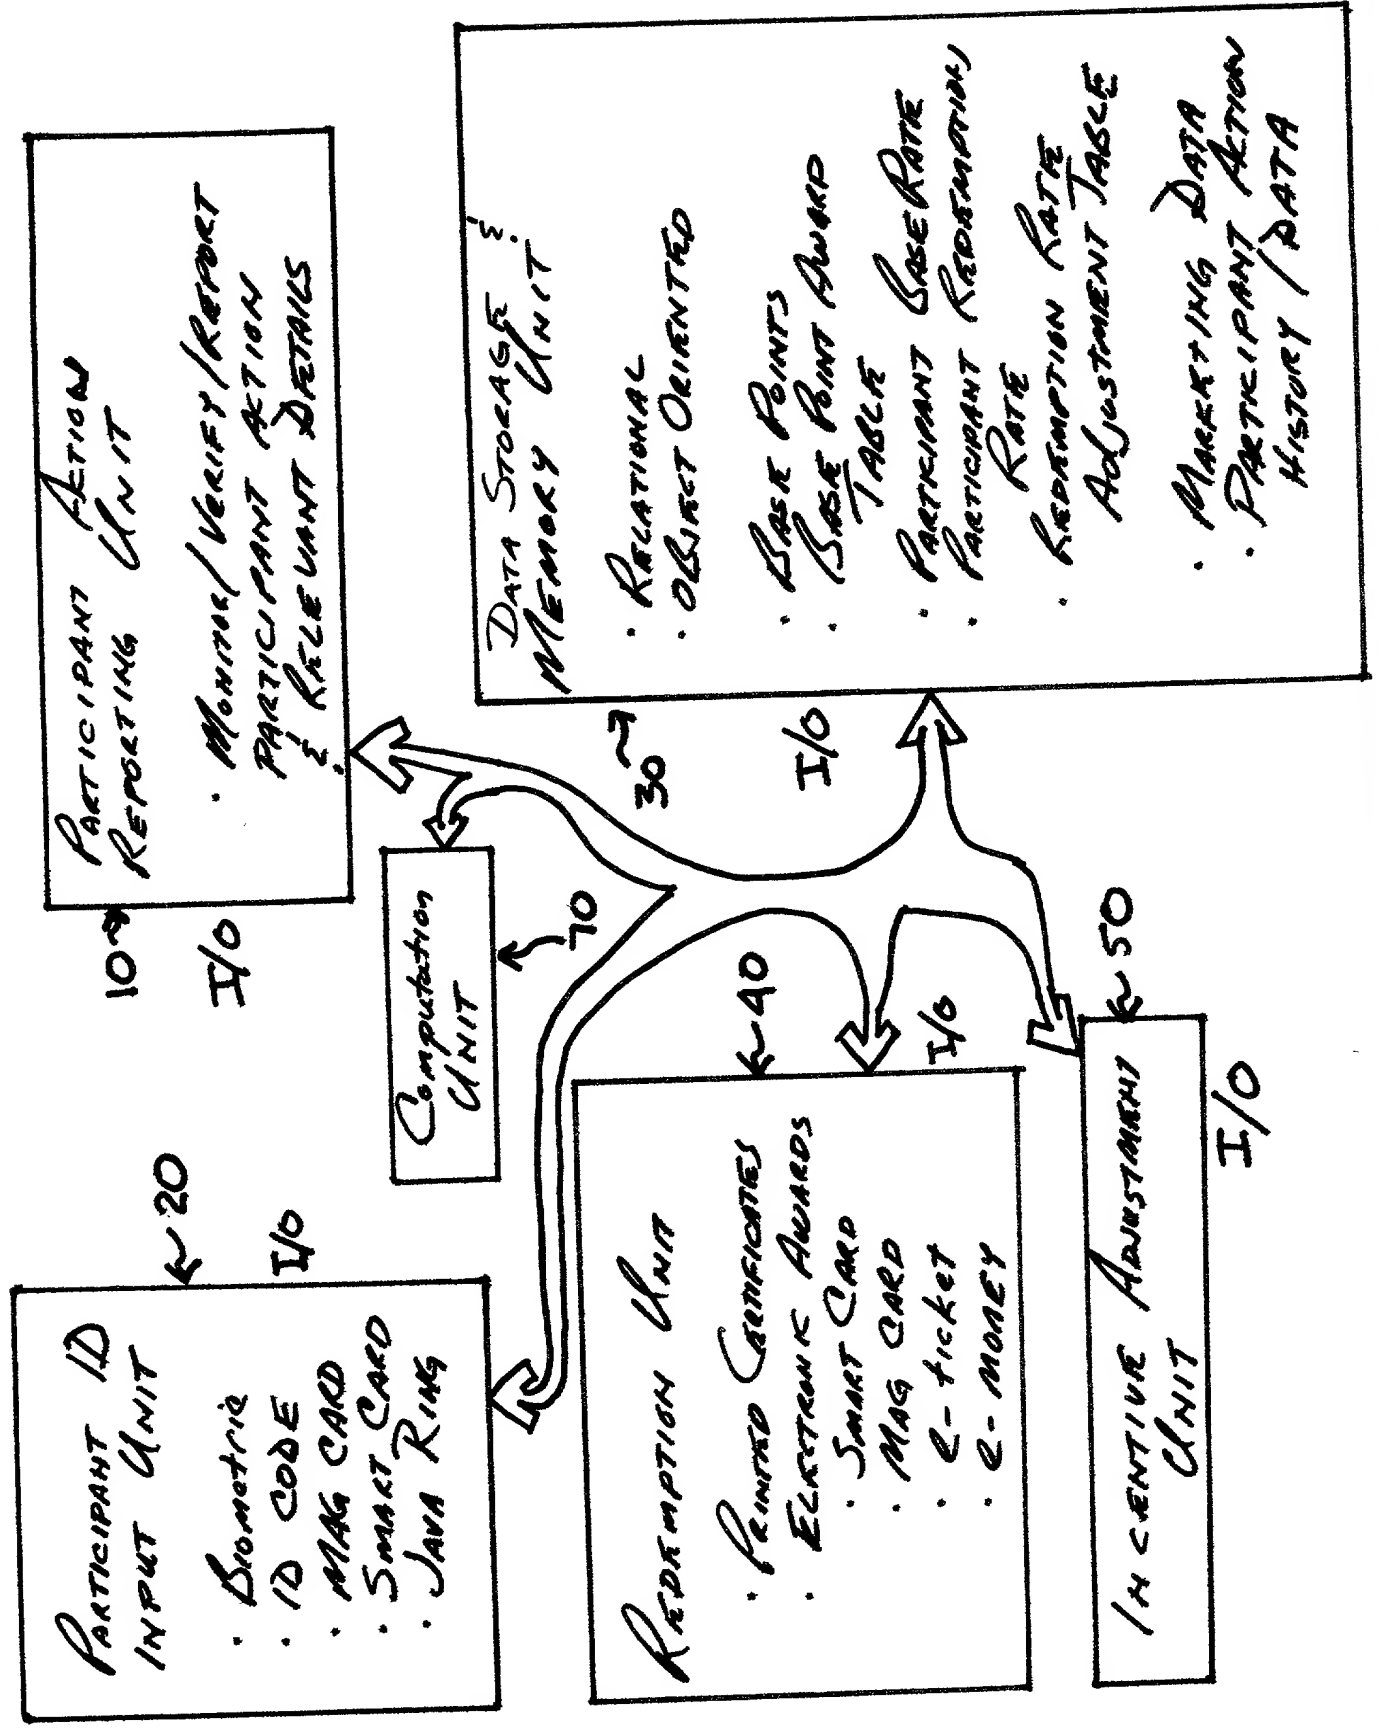 PARTICIPANT ID
INPUT UNIT
· Biometric
· ID CODE
· MAG CARD
· SMART CARD
· JAVA RING
~20
I/O
PARTICIPANT ACTION
REPORTING UNIT
· MONITOR/VERIFY/REPORT
PARTICIPANT ACTION
& RELEVANT DETAILS
10
I/O
Computation
UNIT
70
REDEMPTION UNIT
· PRINTED CERTIFICATES
· ELECTRONIC AWARDS
· SMART CARD
· MAG CARD
· e-ticket
· e-MONEY
~40
I/O
DATA STORAGE &
MEMORY UNIT
· RELATIONAL
· OBJECT ORIENTED
· BASE POINTS
· BASE POINT AWARD
TABLE
· PARTICIPANT BASE RATE
· PARTICIPANT REDEMPTION
RATE
· REDEMPTION RATE
ADJUSTMENT TABLE
· MARKETING DATA
· PARTICIPANT ACTION
HISTORY/DATA
30
I/O
INCENTIVE ADJUSTMENT
UNIT
~50
I/O